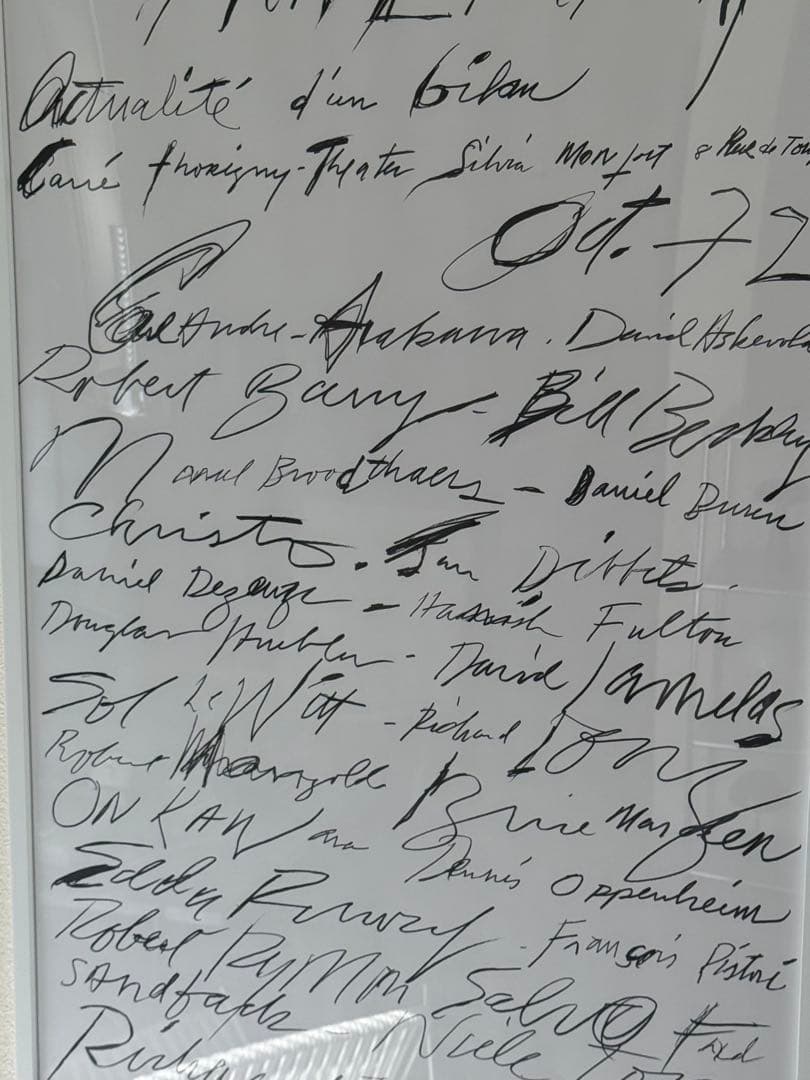 Actualité d'un bilan
Carré Thorigny - Theater Silvia Monfort 8 Rue de
Oct. 72
Carl Andre - Arakawa . David Askevold
Robert Barry - Bill Beckley
Marcel Broodthaers - Daniel Buren
Christo . Jan Dibbets .
Daniel Dezeuze - Hamish Fulton
Douglas Huebler - David Lamelas
Sol LeWitt - Richard Long
Robert Mangold Brice Marden
ON KAWara Dennis Oppenheim
Edda Renouf - François Ristori
Robert Ryman Salvo Fred
SANdback - Niele